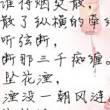 谁将烟焚散
散了纵横的牵
听弦断,
断那三千痴缠。
坠花湮,
湮没一朝风涟